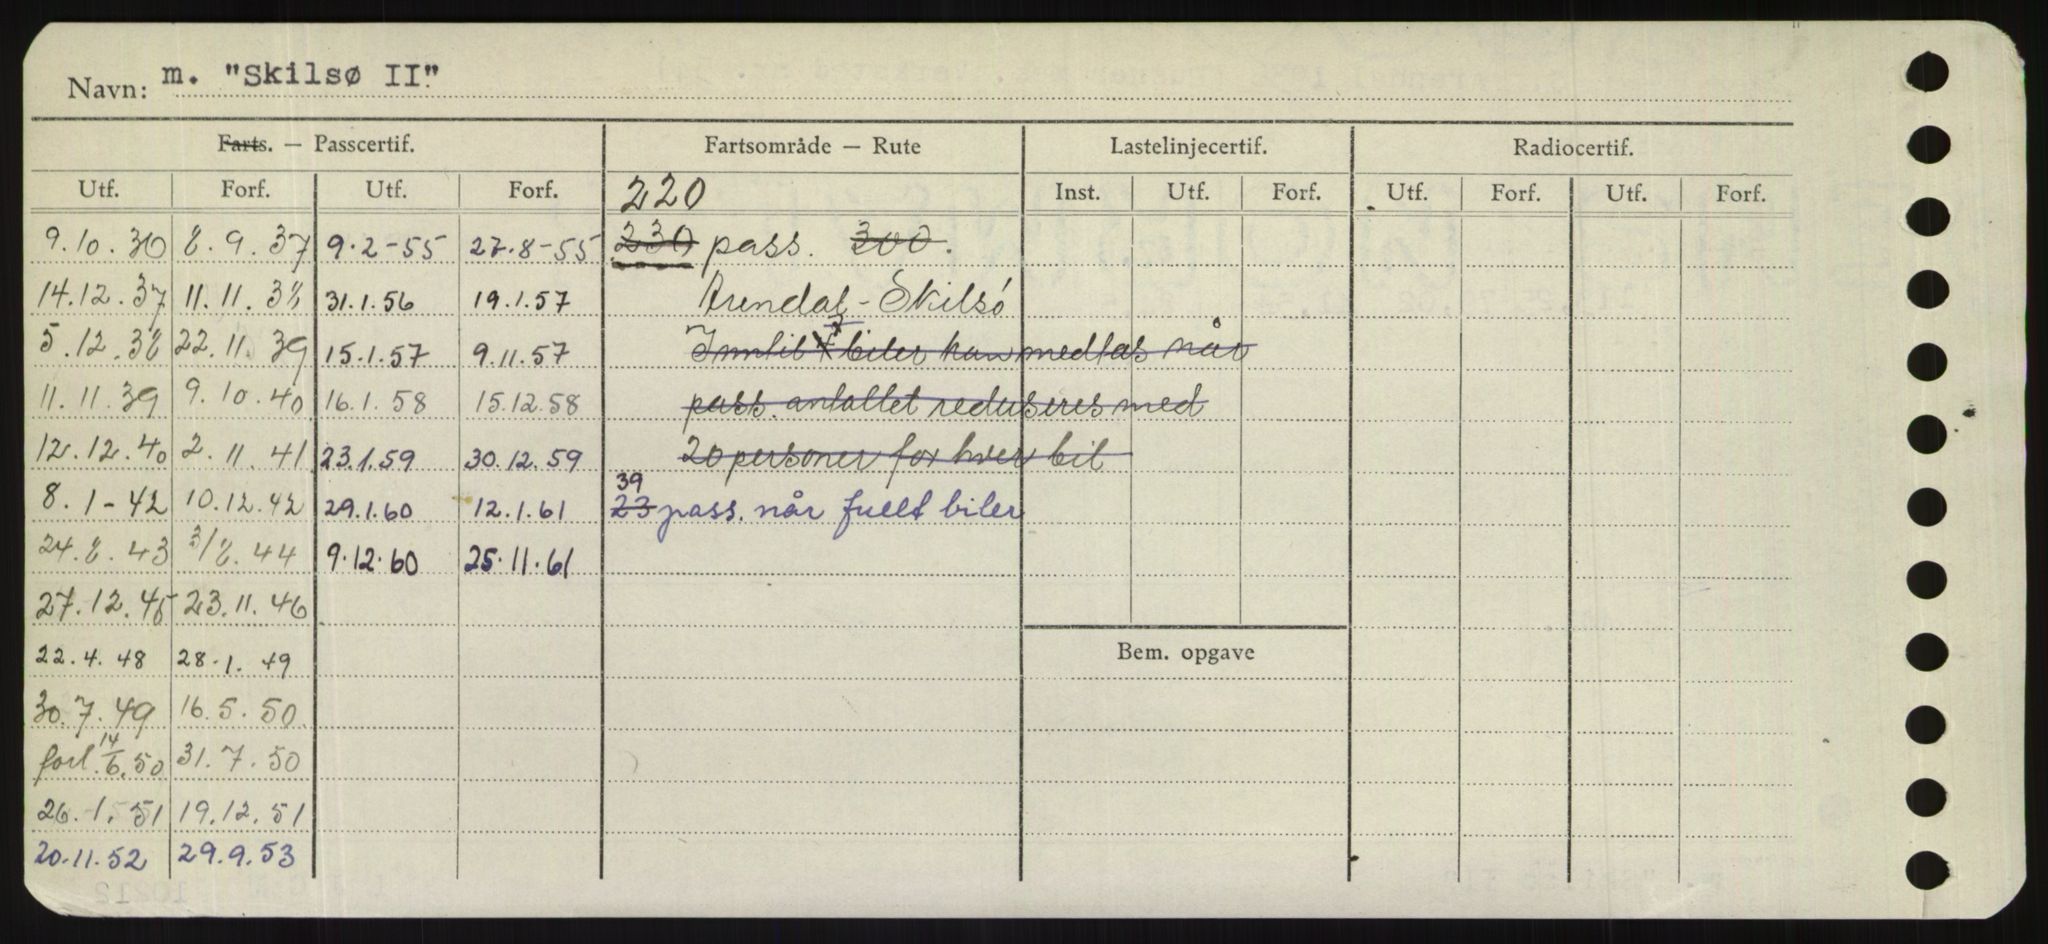 Navn: m. "Skilsø II"
Farts. — Passcertif. Fartsområde — Rute Lastelinjecertif. Radiocertif.
Utf. Forf. Utf. Forf. 220 Inst. Utf. Forf. Utf. Forf. Utf. Forf.
9.10.36 8.9.37 9.2-55 27.8-55 230 pass. 300.
14.12.37 11.11.38 31.1.56 19.1.57 Arendal - Skilsø
5.12.38 22.11.39 15.1.57 9.11.57 Inntil biler kan medtas når
11.11.39 9.10.40 16.1.58 15.12.58 pass. antallet reduseres med
12.12.40 2.11.41 23.1.59 30.12.59 20 personer for hver bil
39
8.1-42 10.12.42 29.1.60 12.1.61 23 pass. når fullt biler
24.8.43 3/8.44 9.12.60 25.11.61
27.12.45 23.11.46
22.4.48 28.1.49 Bem. opgave
30.7.49 16.5.50
forl. 14/6.50 31.7.50
26.1.51 19.12.51
20.11.52 29.9.53